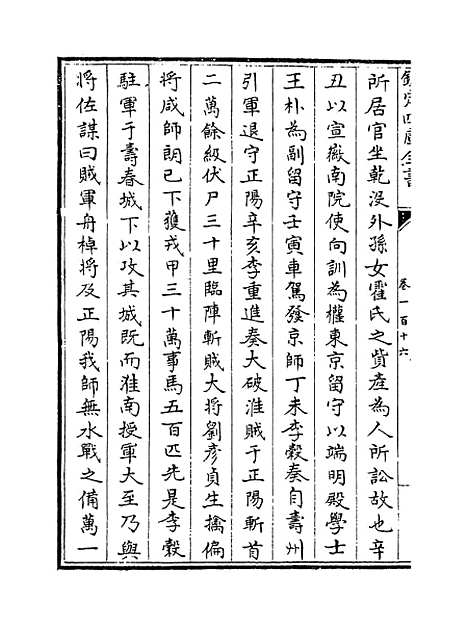 欽定四庫全書
卷一百十六
所居官坐乾没外孫女霍氏之貲産為人所訟故也辛
丑以宣徽南院使向訓為權東京留守以端明殿學士
王朴為副留守壬寅車駕發京師丁未李穀奏自壽州
引軍退守正陽辛亥李重進奏大破淮賊于正陽斬首
二萬餘級伏尸三十里臨陣斬賊大將劉彦貞生擒偏
將咸師朗已下獲戎甲三十萬事馬五百匹先是李穀
駐軍于壽春城下以攻其城既而淮南援軍大至乃與
將佐謀曰賊軍舟棹將及正陽我師無水戰之備萬一